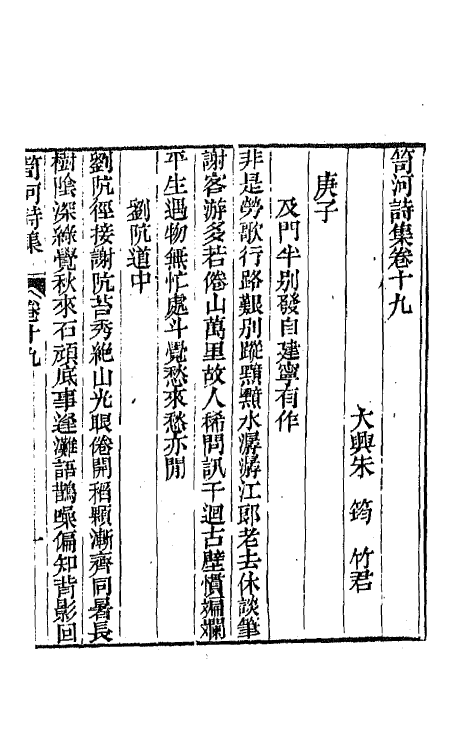 笥河詩集卷十九
大興朱 筠 竹君
庚子
及門半別發自建寧有作
非是勞歌行路艱別蹤顥顥水潺潺江郎老去休談筆
謝客游多若倦山萬里故人稀問訊千迴古壁慣斒斕
平生遇物無忙處斗覺愁來愁亦閒
劉阬道中
劉阬徑接謝阬苔秀絶山光眼倦開稻顆漸齊同暑長
樹陰深綠覺秋來石頑底事逢灘語鵲噪偏知背影回
笥河詩集 卷十九 一